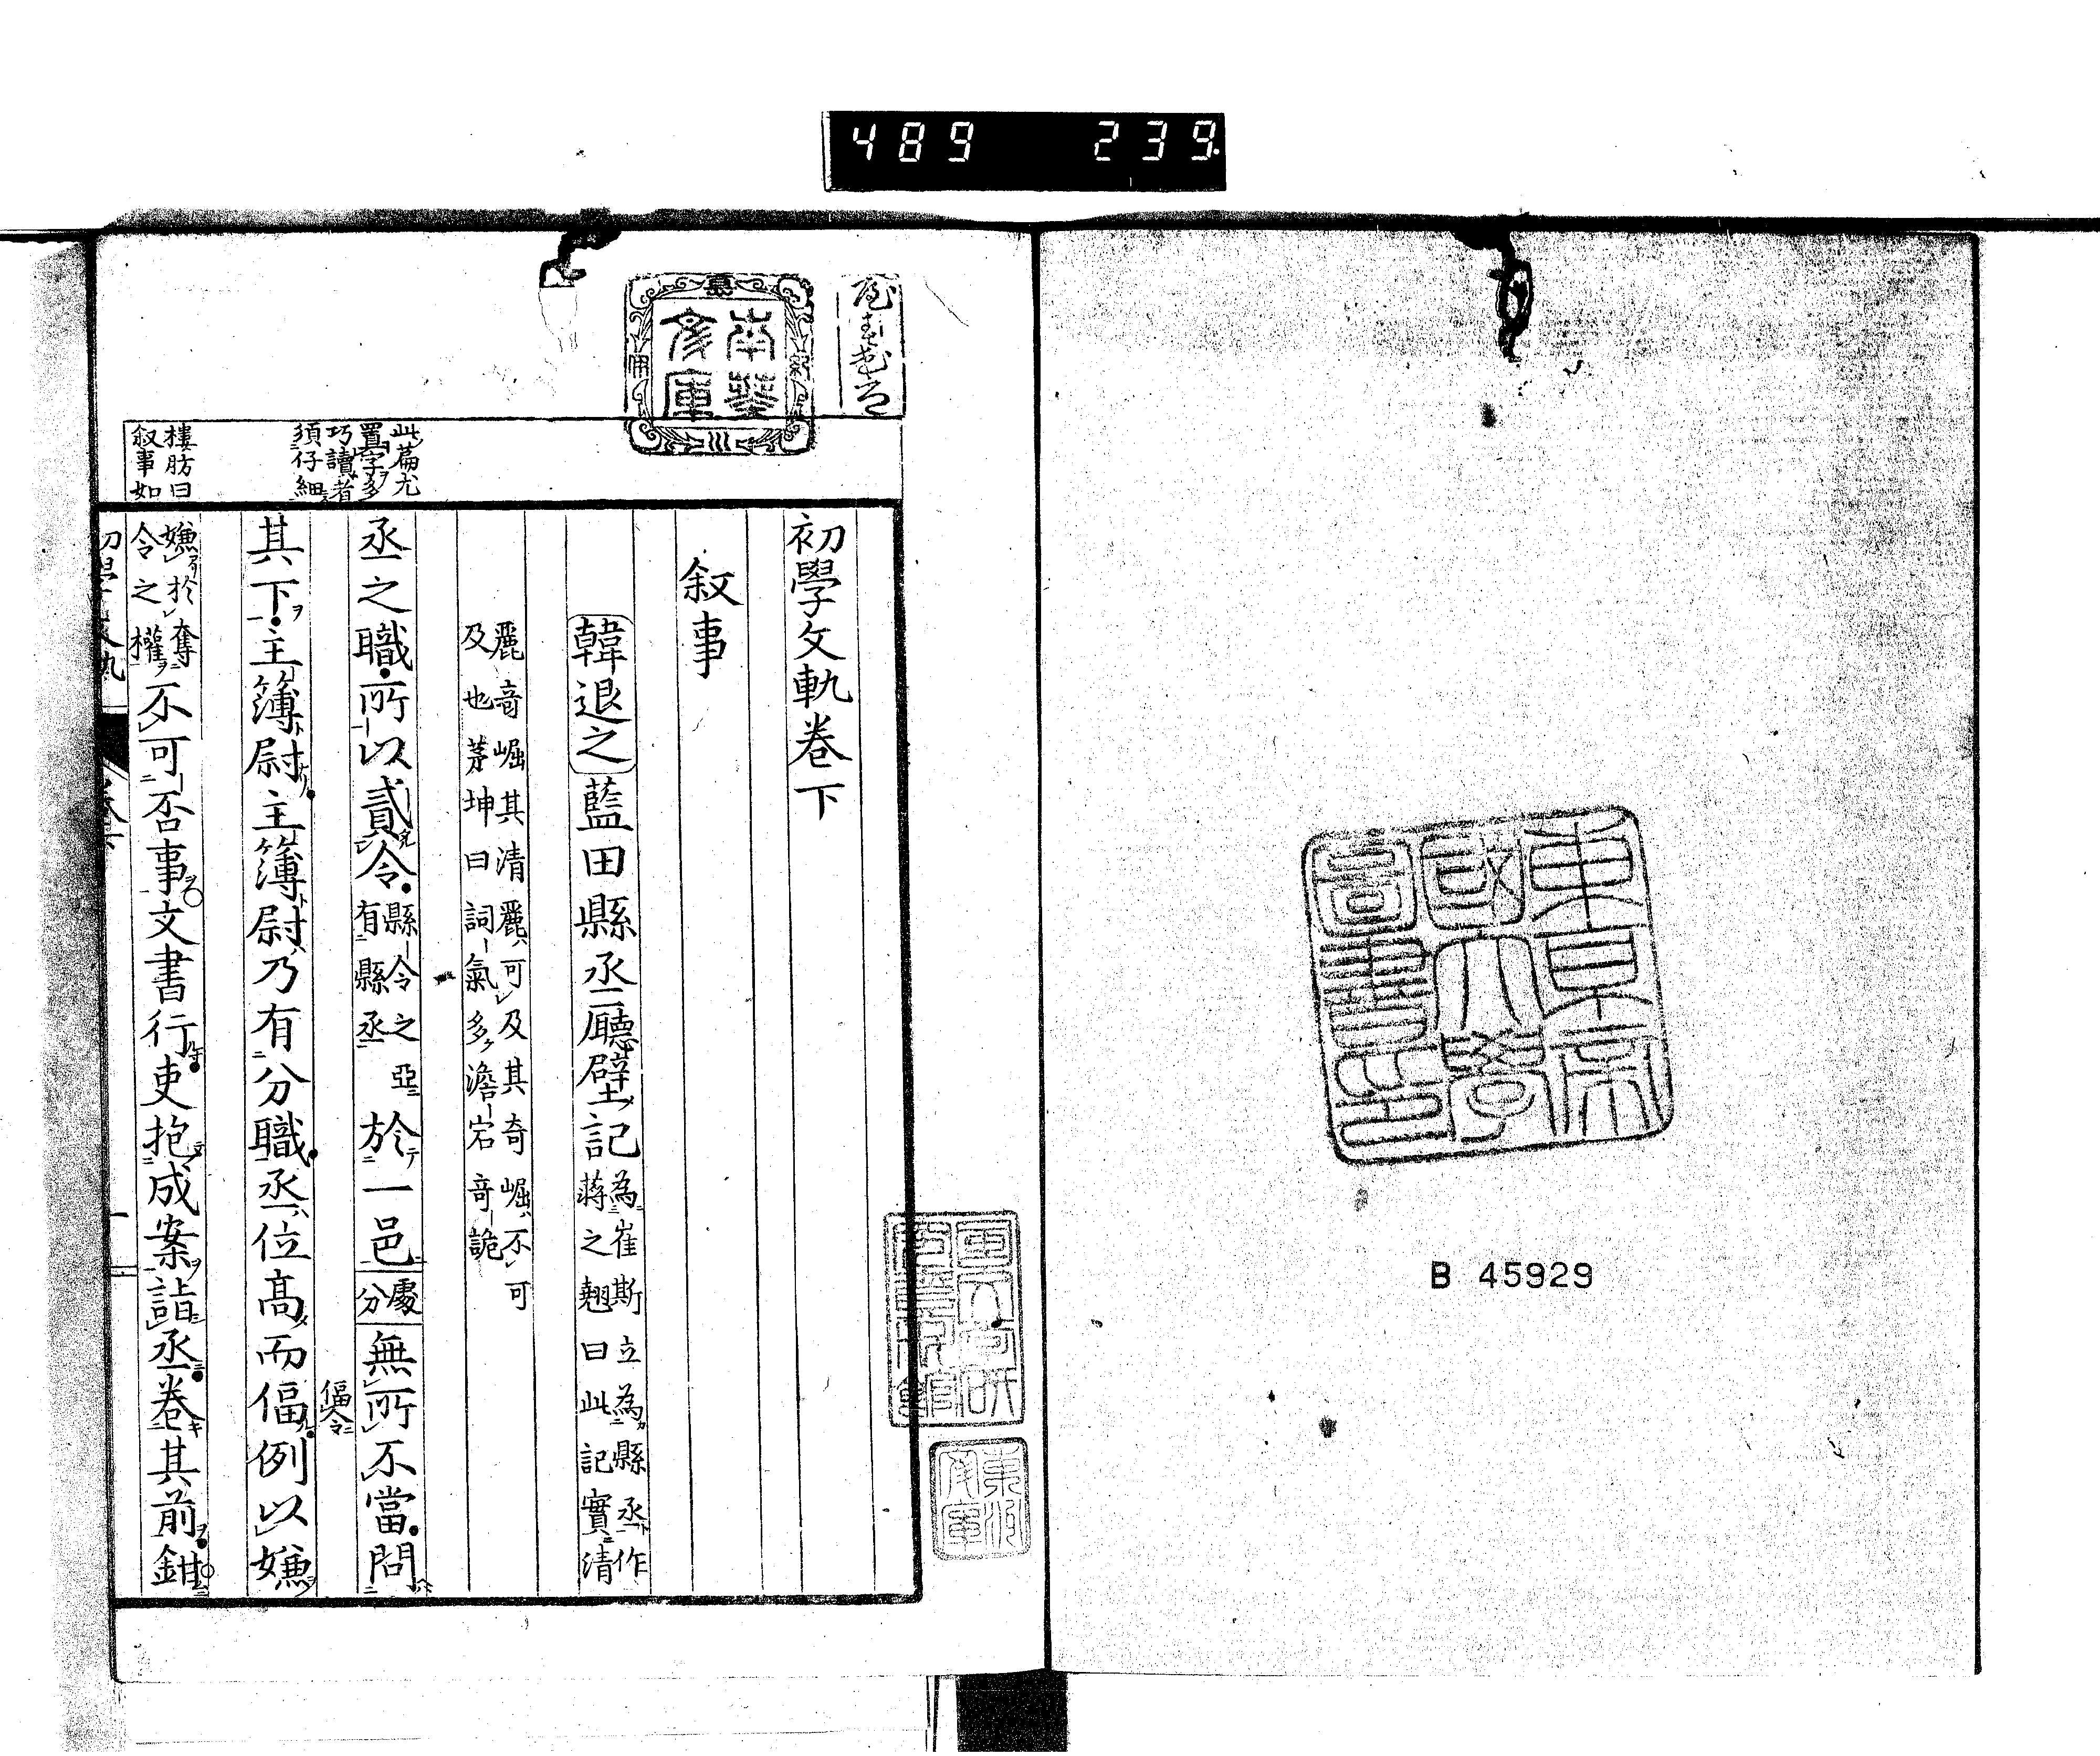 489 239
初學文軌卷下
叙事
韓退之藍田縣丞廳壁記
為崔斯立為縣丞作
蔣之翹曰此記實清
麗奇崛其清麗可及其奇崛不可
及也茅坤曰詞氣多澹宕奇詭
丞之職所以貳令
縣令之亞
有縣丞
於一邑
處
分
無所不當問
偪令
其下主簿尉主簿尉乃有分職丞位高而偪例以嫌
嫌於奪
令之權
不可否事文書行吏抱成案詣丞卷其前鉗
此篇尤
置字多
巧讀者
須仔細
樓昉曰
叙事如
南葵
文庫
東京帝
國大學
圖書印
B 45929